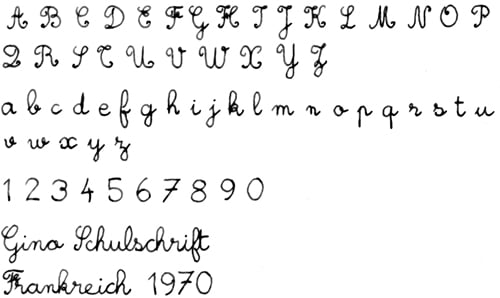 A B C D E F G H I J K L M N O P
Q R S T U V W X Y Z
a b c d e f g h i j k l m n o p q r s t u
v w x y z
1 2 3 4 5 6 7 8 9 0
Gino Schulschrift
Frankreich 1970